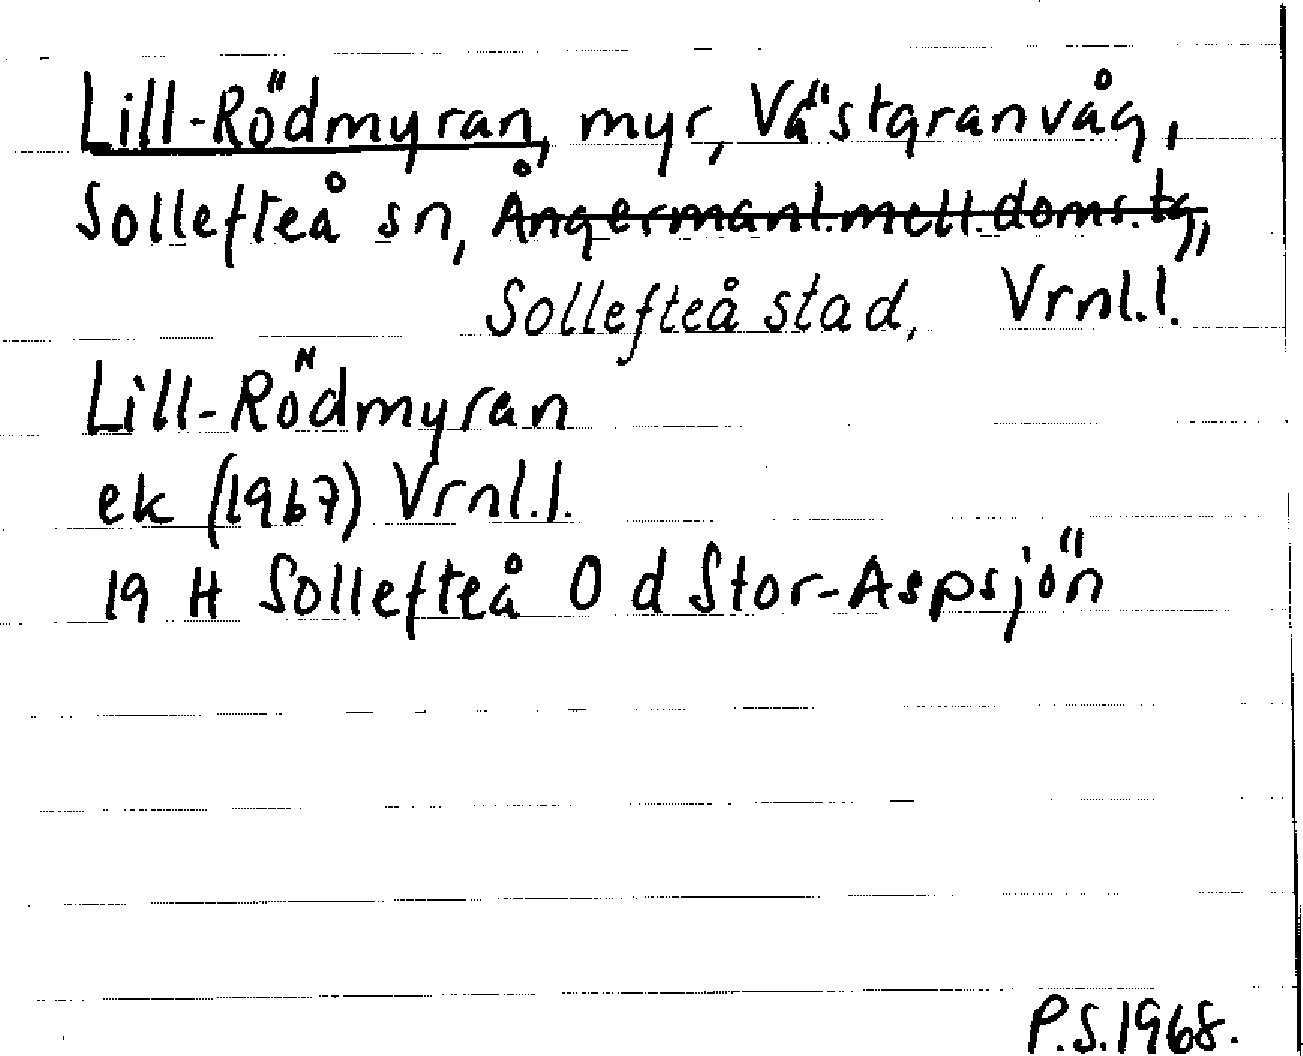 Lill-Rödmyran, myr, Västgranvåg,
Sollefteå sn, Ångermanl. mell. doms. tg,
Sollefteå stad, Vrnl. l.
Lill-Rödmyran
ek (1967) Vrnl. l.
19 H Sollefteå O d Stor-Aspsjön
P.S. 1968.